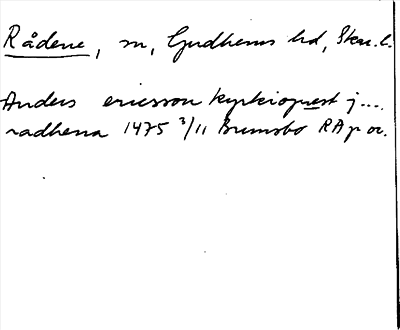 Rådene, sn, Gudhems hd, Skar.l.
Anders ericsson kyrkioprest j ....
radhena 1475 3/11 Brumsbo RAp or.